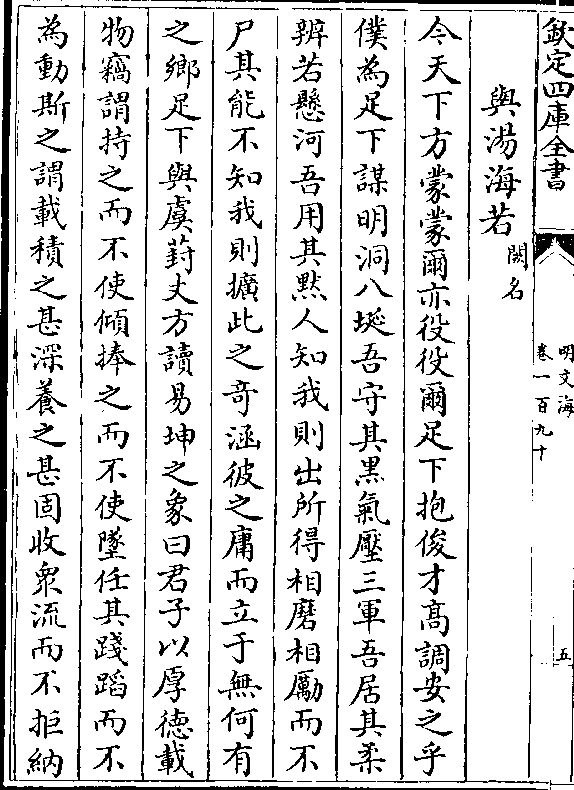 欽定四庫全書
明文海
卷一百九十
五
與湯海若
闕名
今天下方蒙蒙爾亦役役爾足下抱俊才高調安之乎
僕為足下謀明洞八埏吾守其黑氣壓三軍吾居其柔
辨若懸河吾用其默人知我則出所得相磨相勵而不
尸其能不知我則擴此之竒涵彼之庸而立于無何有
之鄉足下與虞葑丈方讀易坤之象曰君子以厚德載
物竊謂持之而不使傾捧之而不使墜任其踐蹈而不
為動斯之謂載積之甚深養之甚固收衆流而不拒納